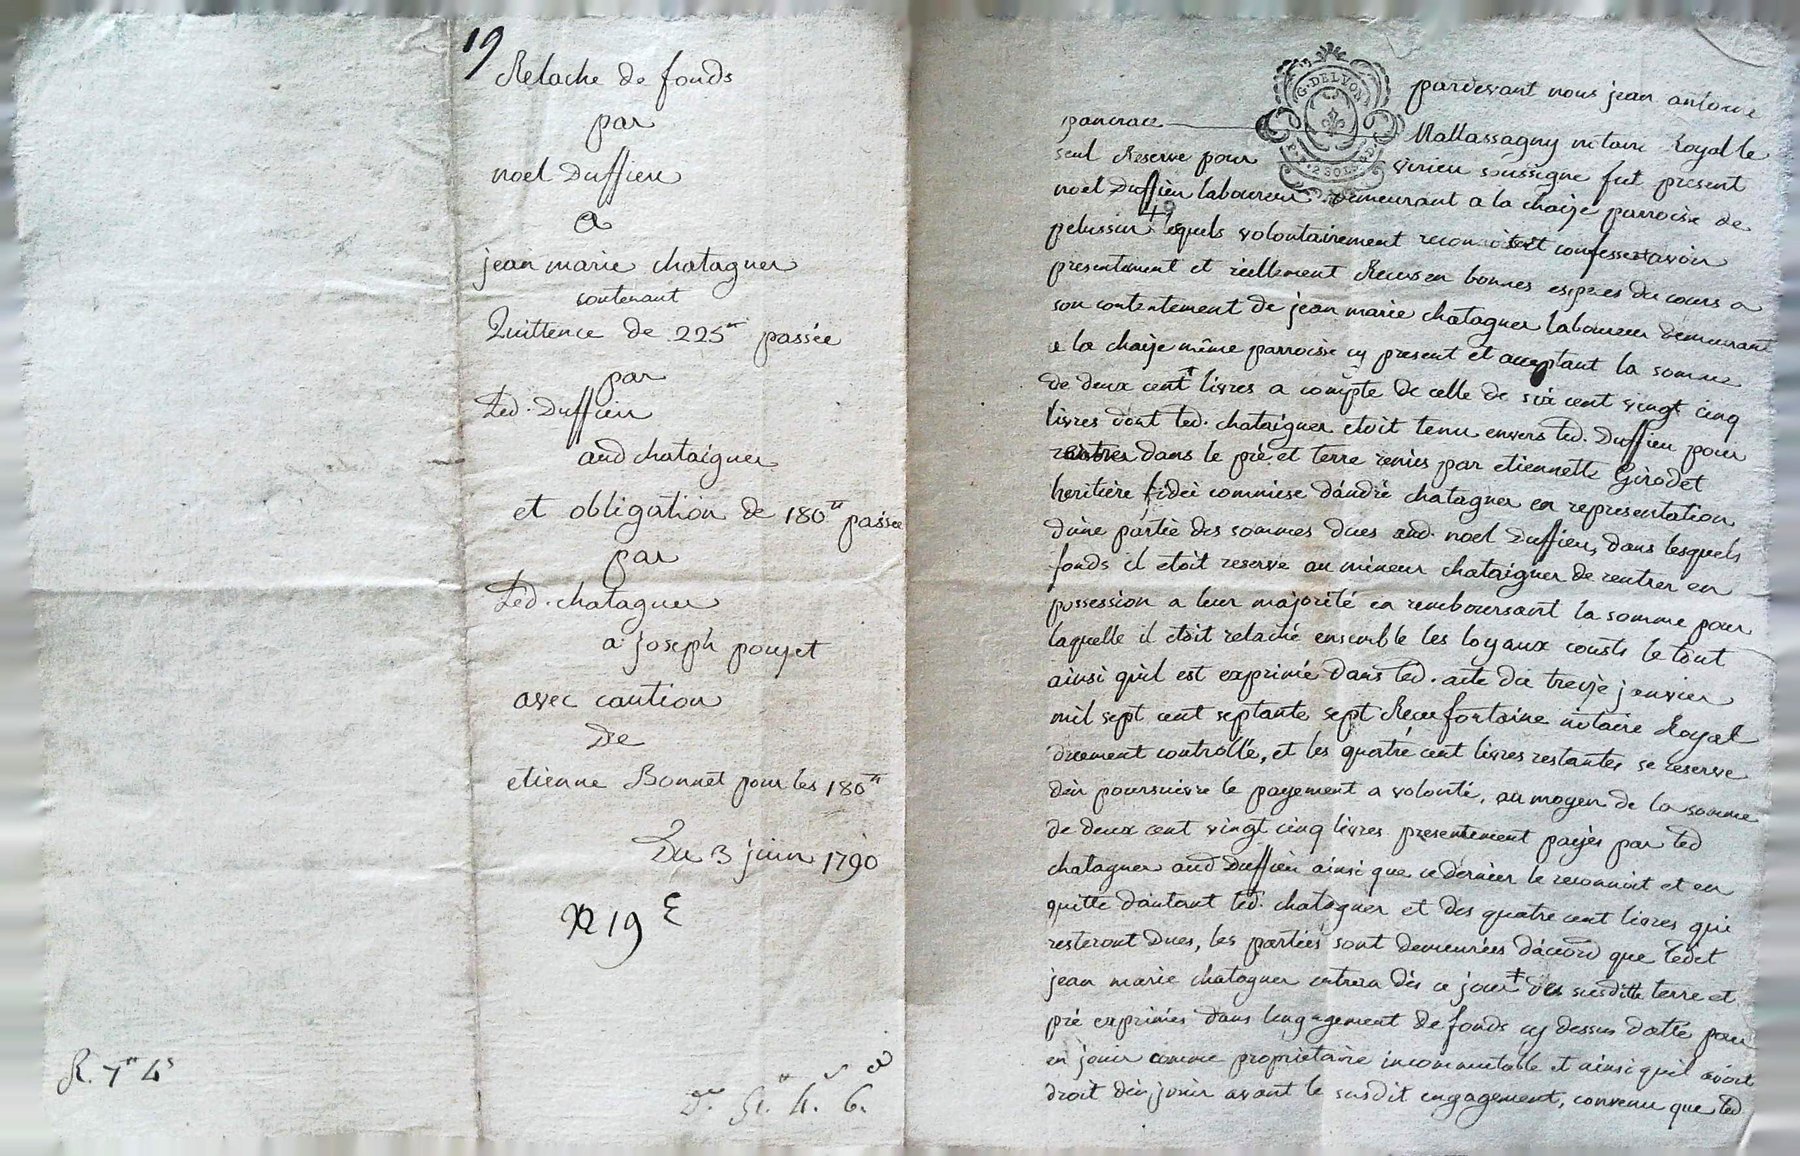 19
Relache de fonds
par
noel Duffieu
a
jean marie chatagner
contenant
Quittence de 225ᵗᵗ passée
par
Led. Duffieu
aud chataigner
et obligation de 180ᵗᵗ passée
par
Led. chatagner
a joseph poujet
avec caution
De
etienne Bonnet pour les 180ᵗᵗ
Du 3 juin 1790
19
R. 7ᵗᵗ 4ˢ
4. 6.
G. DELYON
2 SOLS
pardevant nous jean antoine
pancrace Mallassagny notaire Royal le
seul Reserve pour virieu soussigne fut present
noel Duffieu laboureur demeurant a la chaize parroisse de
pelussin lequels volontairement confesse avoir
presentement et réellement Receu en bonnes especes du cours a
son contentement de jean marie chatagner laboureur demeurant
a la chaize même parroisse cy present et acceptant la somme
de deux cent livres a compte de celle de six cent vingt cinq
livres dont led. chataigner etoit tenu envers led. Duffieu pour
rentrer dans le pré et terre remis par etiennette Girodet
heritière fidei commise d'andré chatagner en representation
d'une partie des sommes dues aud. noel Duffieu, dans lesquels
fonds il etoit reservé au mineur chataigner de rentrer en
possession a leur majorité en remboursant la somme pour
laquelle il etoit relaché ensemble les loyaux couts le tout
ainsi qu'il est exprimé dans led. acte du treize janvier
mil sept cent septante sept Receu fontaine notaire Royal
duement controllé, et les quatre cent livres restantes se reserve
d'en poursuivre le payement a volonté, au moyen de la somme
de deux cent vingt cinq livres presentement payés par led
chatagner aud Duffieu ainsi que ce dernier le reconnoit et en
quitte d'autant led. chatagner et des quatre cent livres qui
resteront dues, les parties sont demeurées d'accord que ledit
jean marie chatagner entrera dès ce jour susditte terre et
pré exprimés dans l'engagement de fonds cy dessus datté pour
en jouir comme proprietaire incommutable et ainsi quil avoit
droit d'en jouir avant le susdit engagement, convenu que led